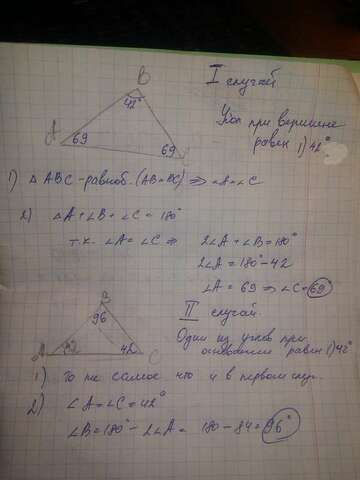 I случай
B
42°
A 69
69 C
Угол при вершине
равен 1) 42°
1) △ ABC - равноб. (AB=BC) ⇒ ∠A=∠C
2) ∠A + ∠B + ∠C = 180°
т.к. ∠A = ∠C ⇒ 2∠A + ∠B = 180°
2∠A = 180° - 42
∠A = 69 ⇒ ∠C = 69
B
96
A 42
42 C
II случай.
Один из углов при
основании равен 1) 42°
1) То же самое что и в первом случ.
2) ∠A = ∠C = 42°
∠B = 180° - 2∠A = 180 - 84 = 96°